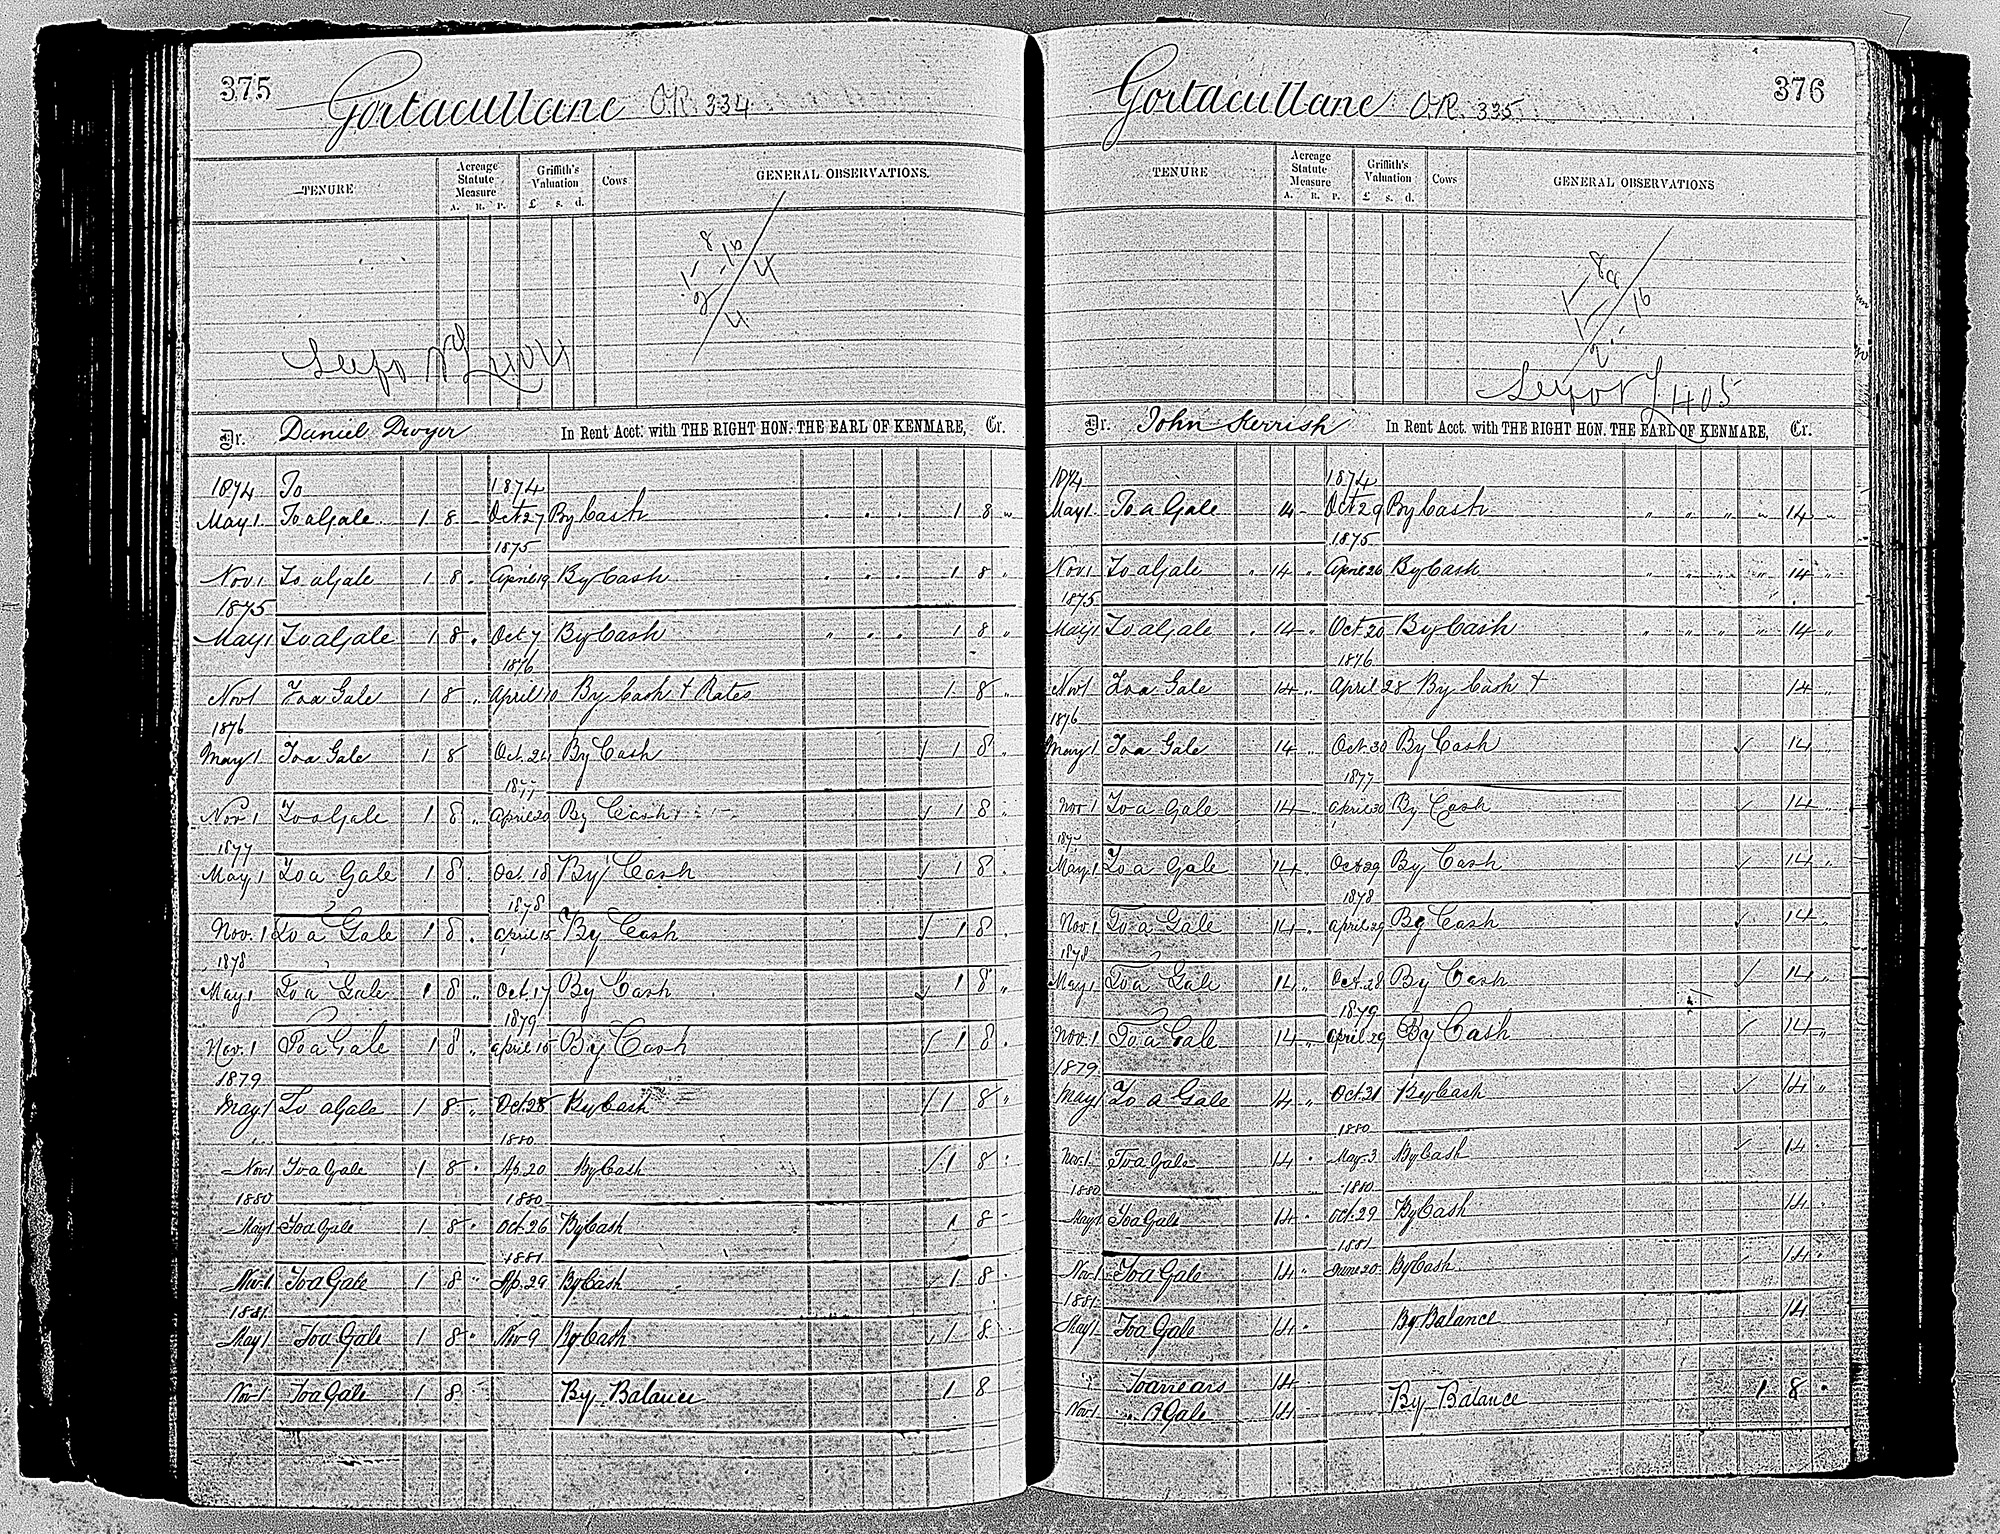 375
Gortacullane O.R. 334
TENURE
Acreage Statute Measure
A. R. P.
Griffith's Valuation
£ s. d.
Cows
GENERAL OBSERVATIONS.
Dr. Daniel Dwyer In Rent Acct. with THE RIGHT HON. THE EARL OF KENMARE, Cr.
1874 To 1874
May 1 To a Gale 1 8 Oct 27 By Cash 1 8 "
1875
Nov. 1 To a Gale 1 8 . April 19 By Cash 1 8 "
1875
May 1 To a Gale 1 8 . Oct 7 By Cash " " " 1 8 "
1876
Nov 1 To a Gale 1 8 . April 10 By Cash + Rates 1 8 "
1876
May 1 To a Gale 1 8 Oct. 24 By Cash √ 1 8 "
1877
Nov 1 To a Gale 1 8 " April 20 By Cash √ 1 8 "
1877
May 1 To a Gale 1 8 . Oct. 18 By Cash √ 1 8 .
1878
Nov. 1 To a Gale 1 8 . April 15 By Cash √ 1 8 .
1878
May 1 To a Gale 1 8 " Oct. 17 By Cash √ 1 8 "
1879
Nov. 1 To a Gale 1 8 " April 15 By Cash √ 1 8 .
1879
May 1 To a Gale 1 8 " Oct 28 By Cash √ 1 8 "
1880
Nov. 1 To a Gale 1 8 " Ap. 20 By Cash √ 1 8 "
1880 1880
May 1 To a Gale 1 8 " Oct. 26 By Cash 1 8 "
1881
Nov. 1 To a Gale 1 8 " Ap. 29 By Cash √ 1 8 .
1881
May 1 To a Gale 1 8 " Nov 9 By Cash 1 8
Nov. 1 To a Gale 1 8 By Balance 1 8
376
Gortacullane O.R. 335
TENURE
Acreage Statute Measure
A. R. P.
Griffith's Valuation
£ s. d.
Cows
GENERAL OBSERVATIONS
405
Dr. John In Rent Acct. with THE RIGHT HON. THE EARL OF KENMARE, Cr.
1874 1874
May 1 To a Gale 14 Oct 29 By Cash " " " " 14 "
1875
Nov. 1 To a Gale " 14 " April 26 By Cash " " " " 14 "
1875
May 1 To a Gale " 14 " Oct 20 By Cash " " " " 14 "
1876
Nov 1 To a Gale 14 " April 28 By Cash + 14 "
1876
May 1 To a Gale 14 " Oct. 30 By Cash √ 14
1877
Nov 1 To a Gale 14 " April 30 By Cash √ 14 "
1877
May 1 To a Gale 14 " Oct 29 By Cash √ 14 "
1878
Nov. 1 To a Gale 14 . April 29 By Cash √ 14 "
1878
May 1 To a Gale 14 " Oct. 28 By Cash √ 14 "
1879
Nov. 1 To a Gale 14 " April 29 By Cash √ 14 "
1879
May 1 To a Gale 14 " Oct. 31 By Cash √ 14 "
1880
Nov. 1 To a Gale 14 " May 3 By Cash √ 14 "
1880 1880
May 1 To a Gale 14 " Oct. 29 By Cash 14 "
1881
Nov. 1 To a Gale 14 " June 20 By Cash √ 14 "
1881
May 1 To a Gale 14 " By Balance 14
To arrears 14
Nov. 1 " A Gale 14 By Balance 1 8 .